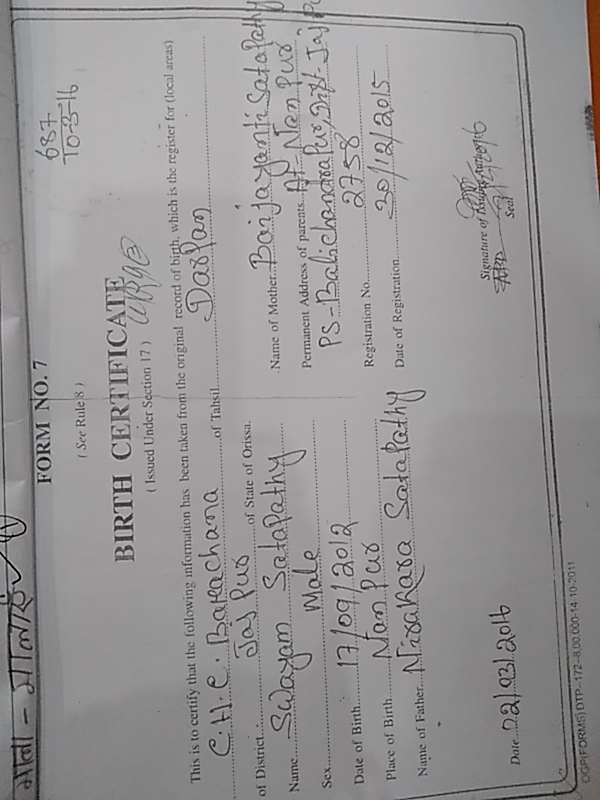 माता - मालती
FORM NO. 7
687
10-3-16
( See Rule 8 )
BIRTH CERTIFICATE
( Issued Under Section 17 )
This is to certify that the following information has been taken from the original record of birth, which is the register for (local areas)
C.H.C. Barachana of Tahsil Darpan
of District Jajpur of State of Orissa.
Name Swayam Satapathy
Sex Male
Date of Birth 17/09/2012
Place of Birth Nanpur
Name of Father Nirakara Satapathy
Name of Mother Baijayanti Satapathy
Permanent Address of parents At- Nanpur
PS-Balichandrapur, Dist- Jajpur
Registration No. 2758
Date of Registration 30/12/2015
Date 22/03/2016
Signature of
Seal
OGP(FORMS) DTP--172--8,00,000-14-10-2011